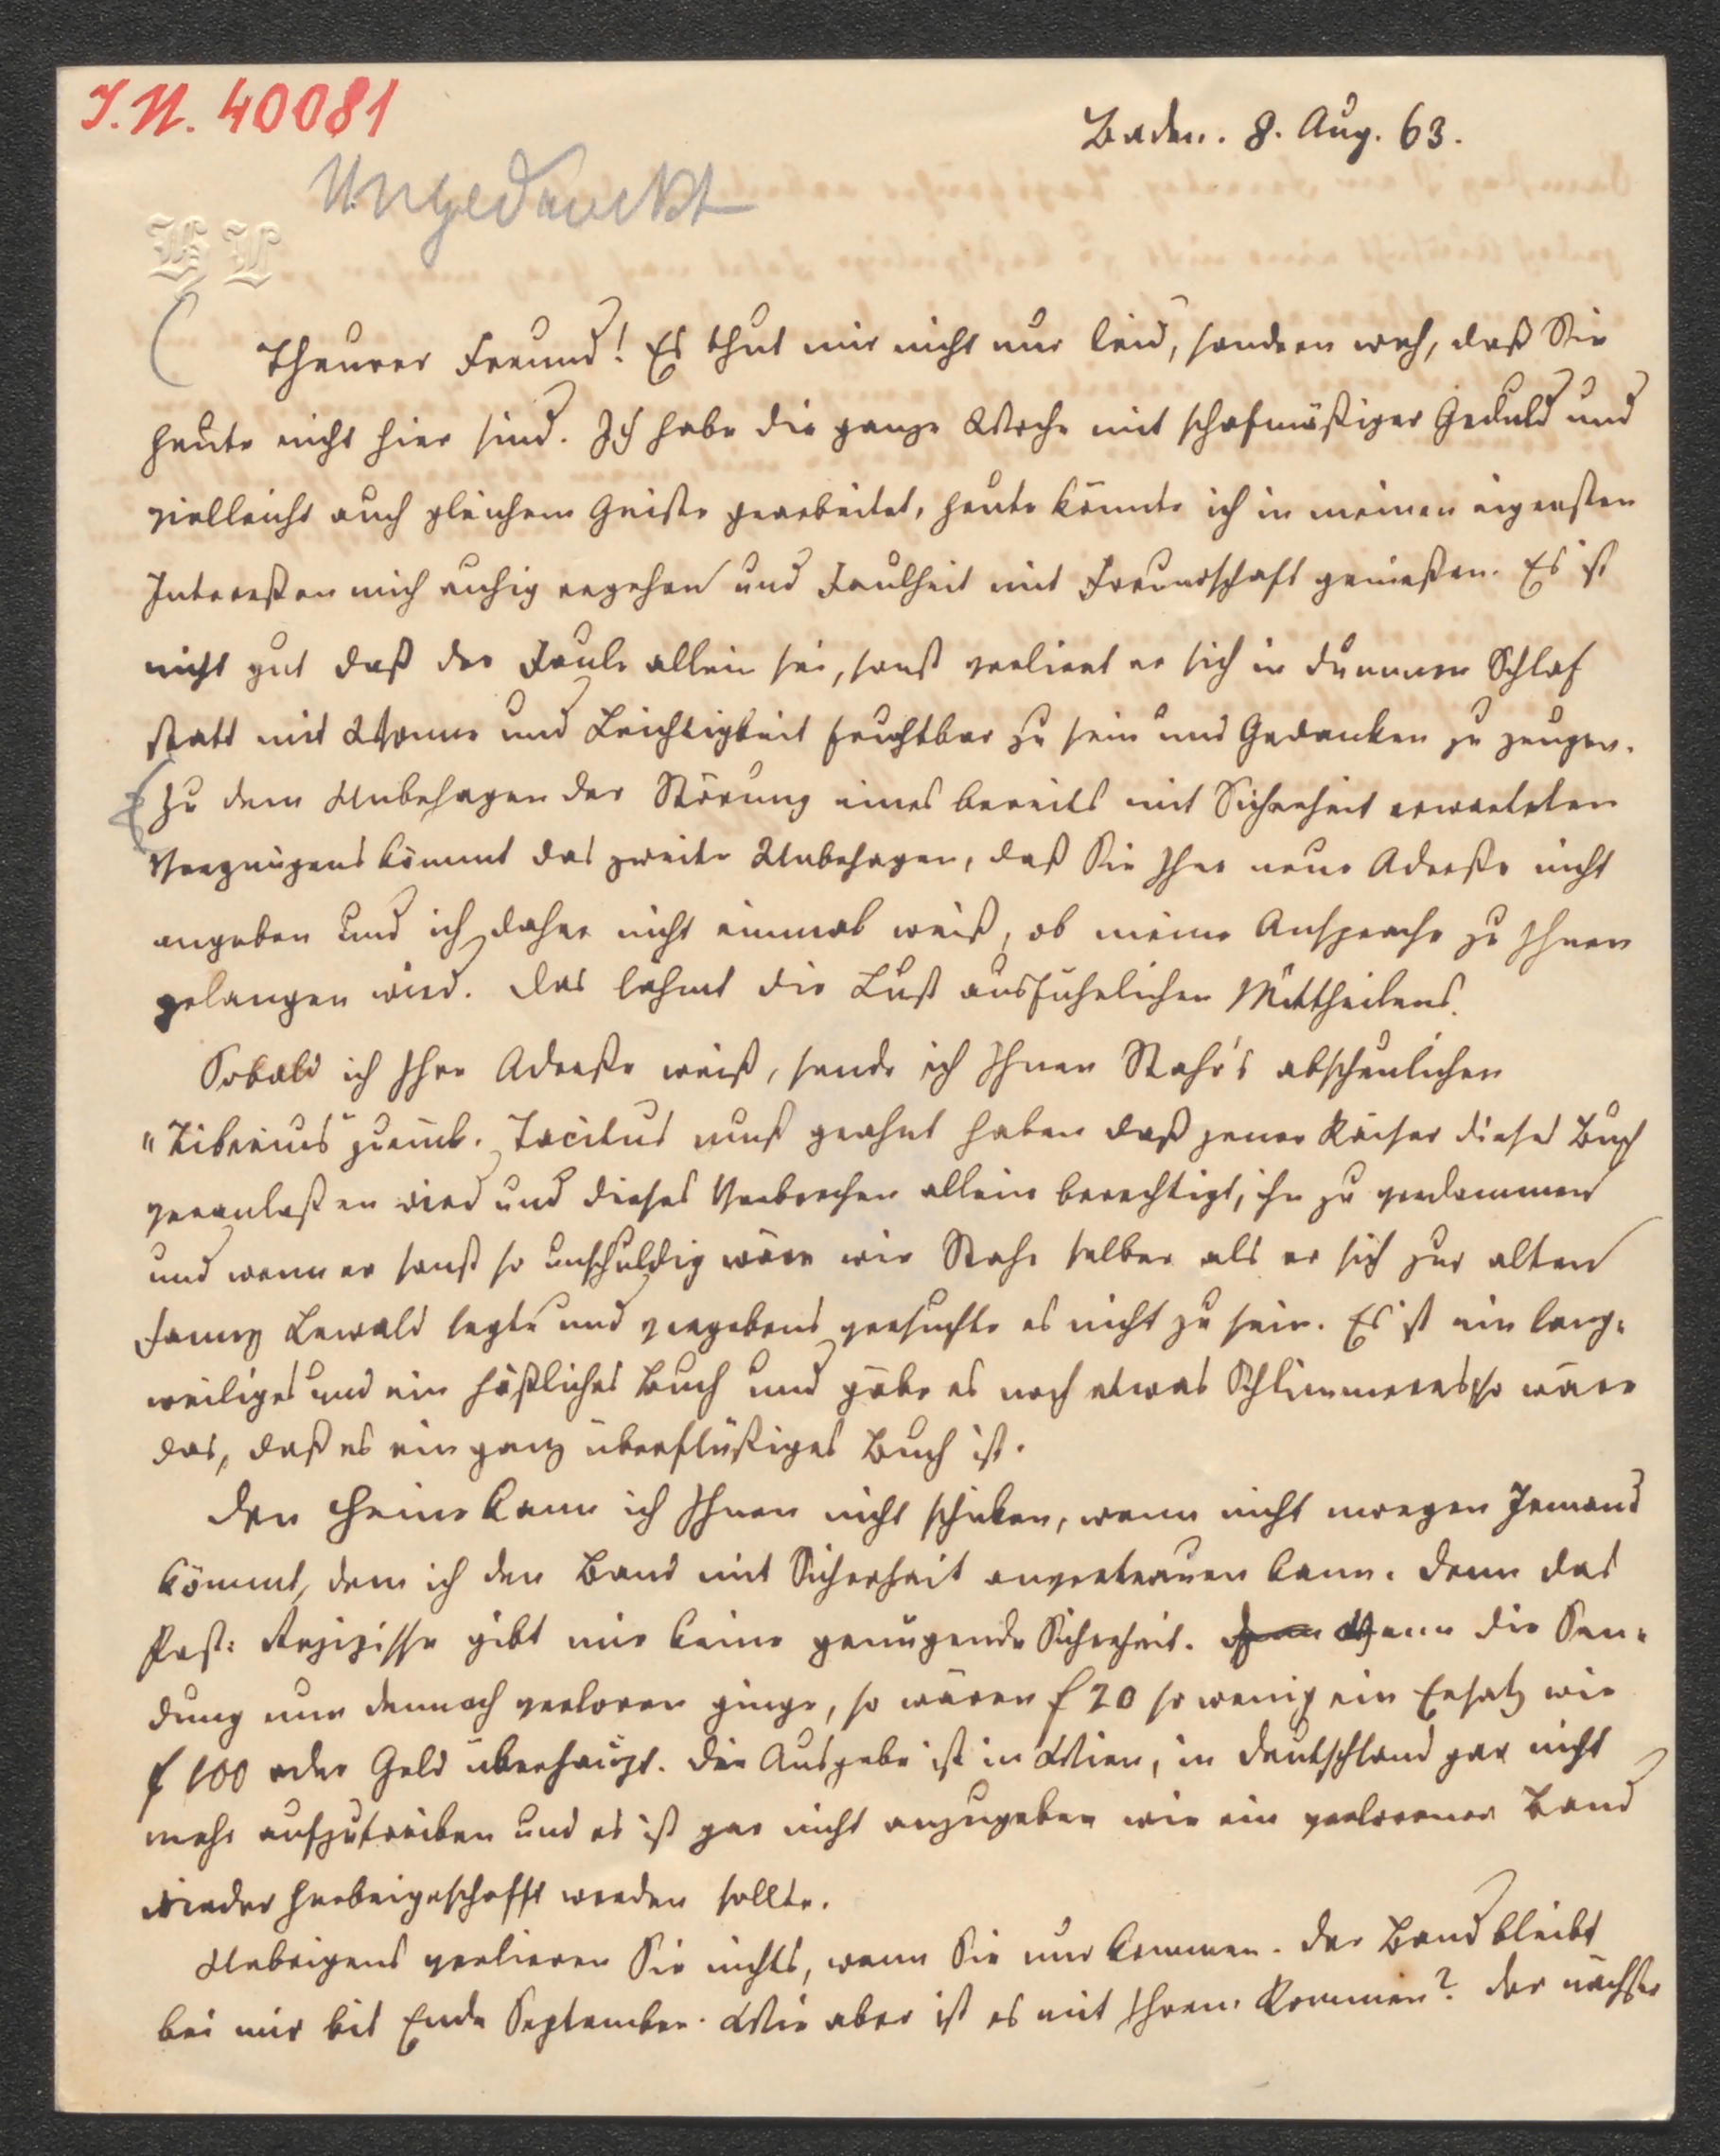 I.N. 40081
Baden. 8. Aug. 63.
Ungedruckt
HL
Theurer Freund! Es thut mir nicht nur leid, sondern weh, daß Sie
heute nicht hier sind. Ich habe die ganze Woche mit schafmäßiger Geduld und
vielleicht auch gleichem Geiste gearbeitet, heute könnte ich in meinen eigensten
Intereßen mich ruhig ergehen und Faulheit mit Freundschaft genießen. Es ist
nicht gut daß der Faule allein sei, sonst verliert er sich in dummen Schlaf
statt mit Wonne und Leichtigkeit fruchtbar zu sein und Gedanken zu zeugen.
Zu dem Unbehagen der Störung eines bereits mit Sicherheit erwarteten
Vergnügens kömmt das zweite Unbehagen, daß Sie Ihre neue Adreße nicht
angeben und ich daher nicht einmal weiß, ob meine Ansprache zu Ihnen
gelangen wird. Das lähmt die Lust ausführlichen Mittheilens.
Sobald ich Ihre Adreße weiß, sende ich Ihnen Stahr's abscheulichen
"Tiberius" zurück. Tacitus muß geahnt haben daß jener Kaiser dieses Buch
veranlaßen wird und dieses Verbrechen allein berechtigt, ihn zu verdammen
und wenn er sonst so unschuldig wäre wie Stahr selber als er sich zur alten
Fanny Lewald legte und vergebens versuchte es nicht zu sein. Es ist ein lang-
weiliges und ein häßliches Buch und gäbe es noch etwas Schlimmeres, so wäre
das, daß es ein ganz überflüßiges Buch ist.
Den Heine kann ich Ihnen nicht schicken, wenn nicht morgen Jemand
kömmt, dem ich den Band mit Sicherheit anvertrauen kann. Denn das
Post-Rezipisse gibt mir keine genügende Sicherheit. Wenn die Sen-
dung nun dennoch verloren ginge, so wären f 20 so wenig ein Ersatz wie
f 100 oder Geld überhaupt. Die Ausgabe ist in Wien, in Deutschland gar nicht
mehr aufzutreiben und es ist gar nicht anzugeben wie ein verlorener Band
wieder herbeigeschafft werden sollte.
Uebrigens verlieren Sie nichts, wenn Sie nur kommen. Der Band bleibt
bei mir bis Ende September. Wie aber ist es mit Ihrem Kommen? Der nächste